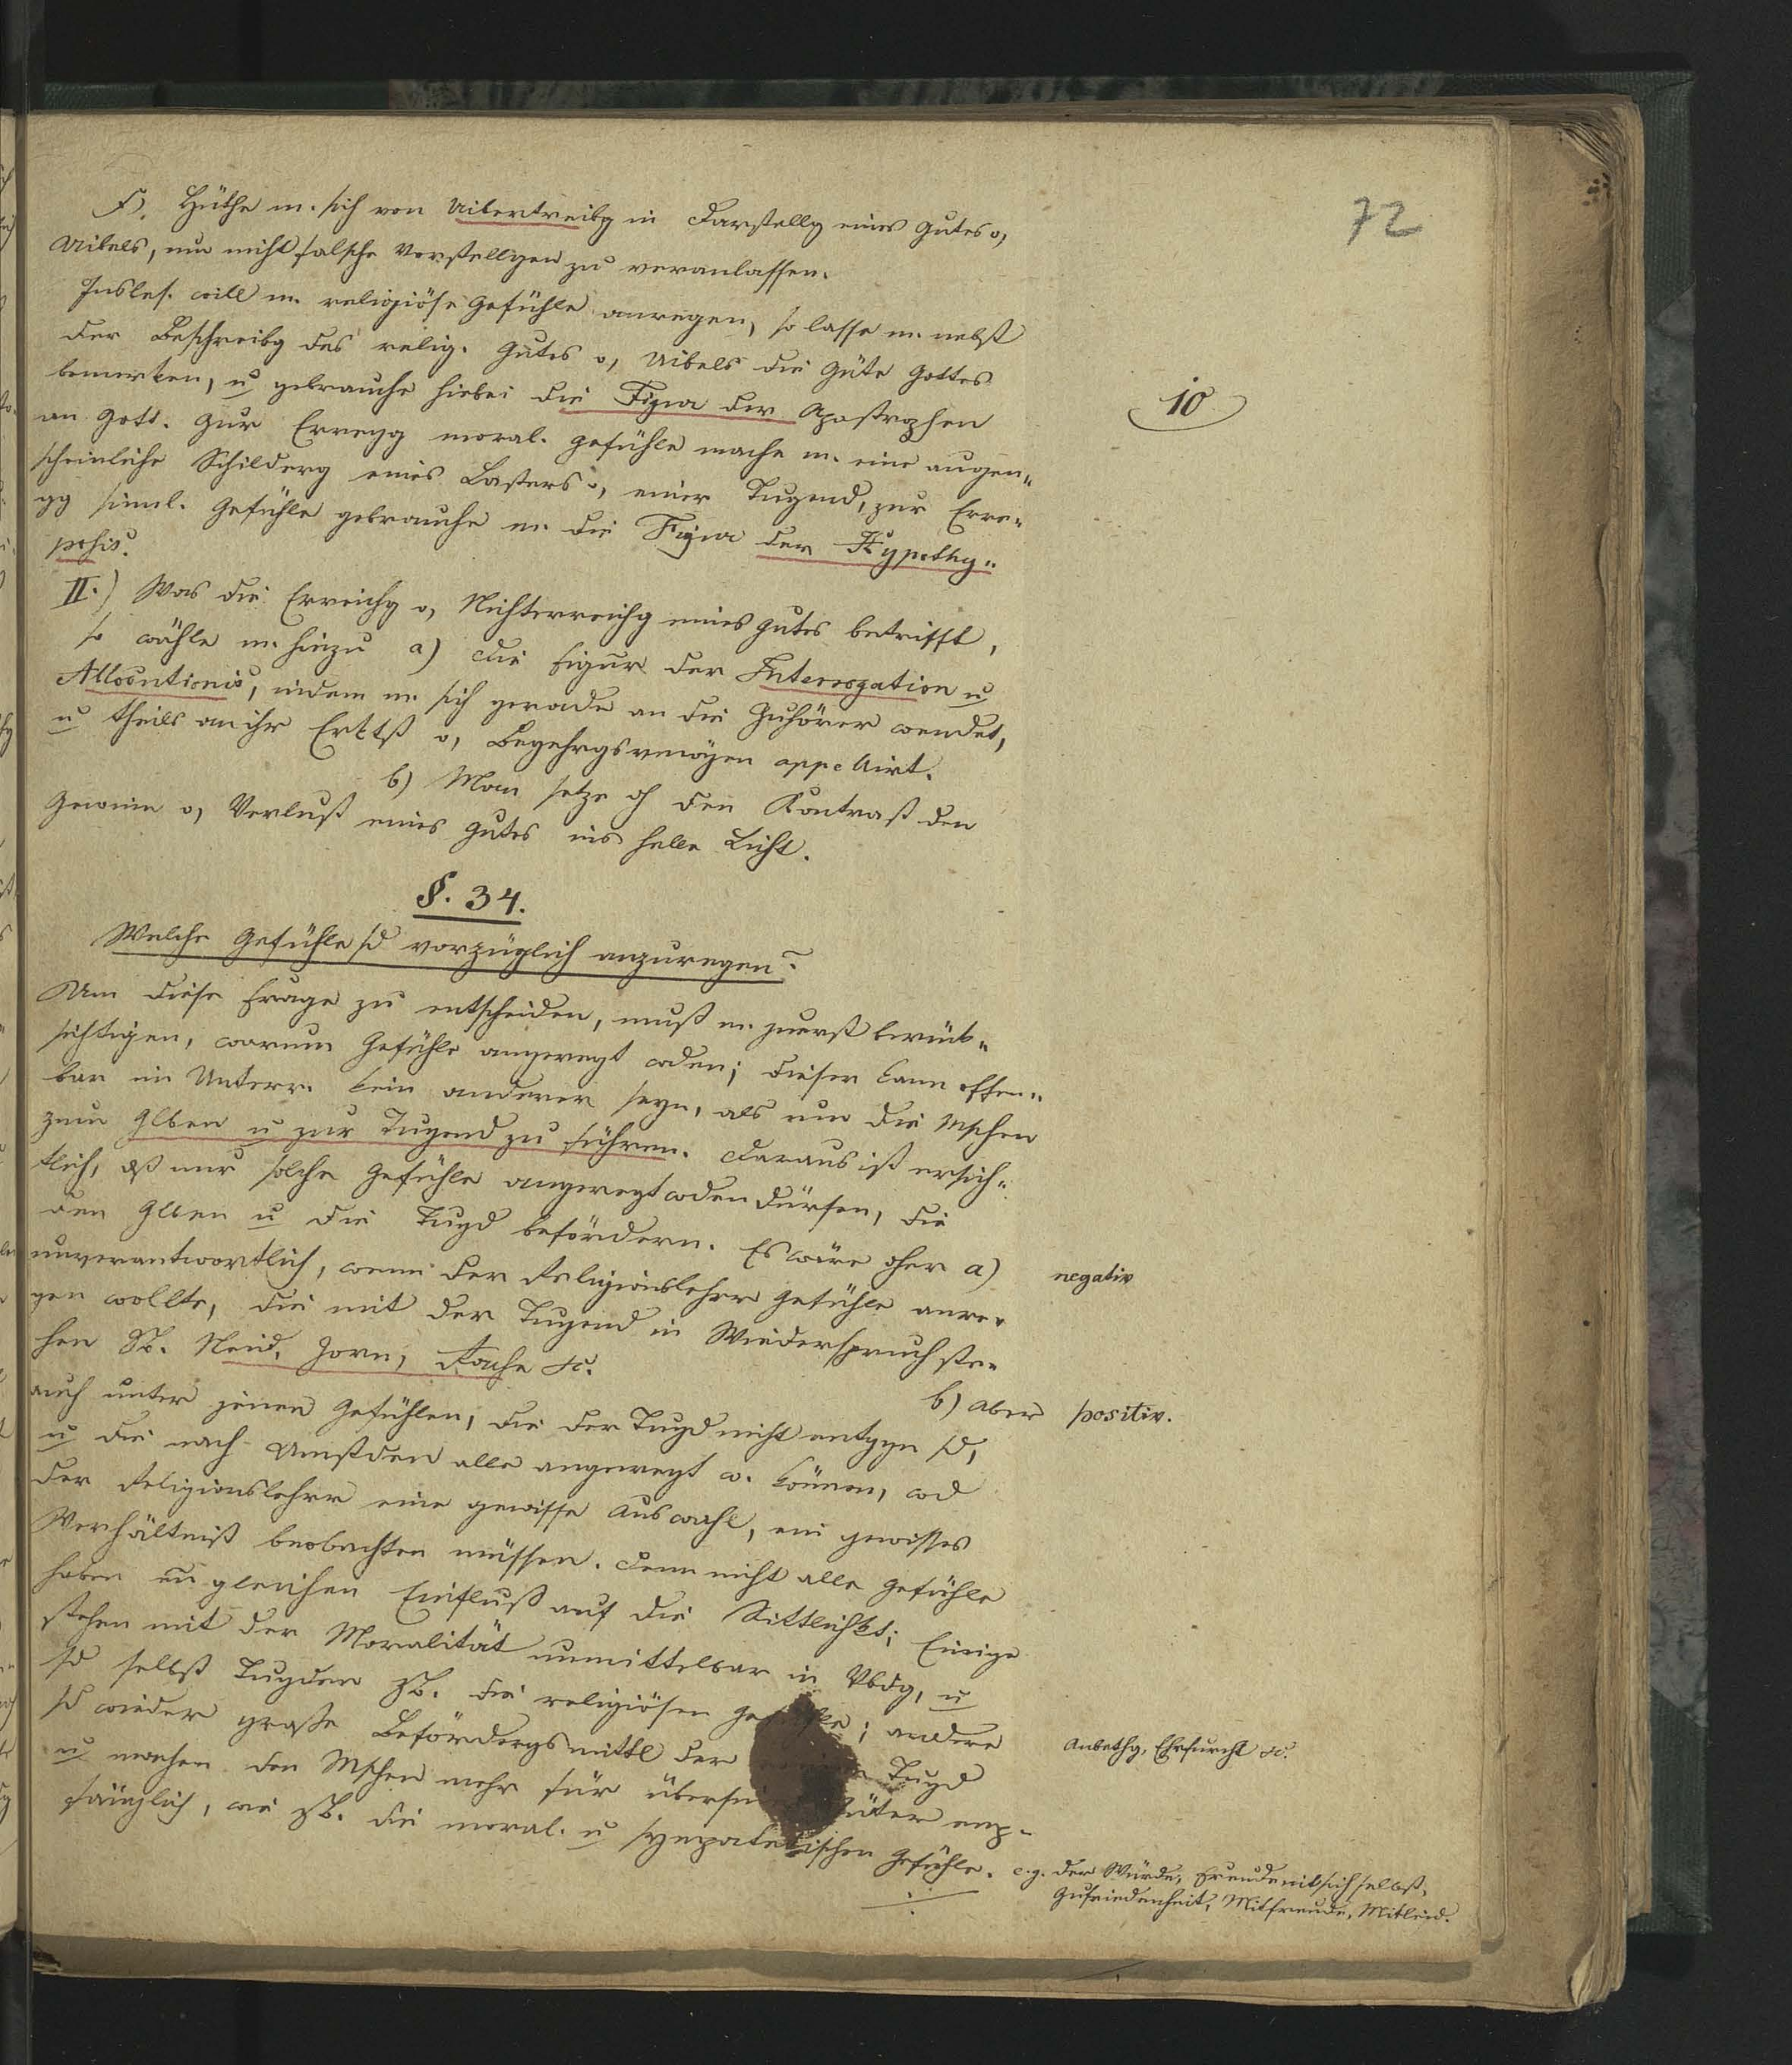 72
10
F. Hüthe m. sich von Uibertreibg in Darstellg eines Gutes o,
Uibels, um nicht falsche Vorstellgen zu veranlassen.
Insbes. will m. religiöse Gefühle anregen, so lasse m. nebst
der Beschreibg des relig. Gutes o, Uibels die Güte Gottes
bemerken, u gebrauche hiebei die Figur der Apostrophen
an Gott. Zur Erregg moral. Gefühle mache m. eine augen„
scheinliche Schilderg eines Lasters o, einer Tugend, zur Erre„
gg sinnl. Gefühle gebrauche m. die Figur der Hypothy„
posis.
II.) Was die Erreichg o, Nichterreichg eines Gutes betrifft,
so wähle m. hiezu a) die Figur der Interrogation u
Allocutionis, indem m. sich gerade an die Zuhörer wendet,
u theils an ihr Erktß o, Begehrgsvmögen appellirt.
b) Man setze dh den Kontrast den
Gewinn o, Verlust eines Gutes ins helle Licht.
§. 34.
Welche Gefühle sd vorzüglich anzuregen?
Um diese Frage zu entscheiden, muß m. zuerst berück„
sichtigen, warum Gefühle angeregt wden; dieser kann offen„
bar im Unterr. kein anderer seyn, als um die Mschen
zum Glben u zur Tugend zu führen. Daraus ist ersich„
tlich, dß nur solche Gefühle angeregt wden dürfen, die
den Glben u die Tugd befördern. Es wäre dher a)
negativ
unverantwortlich, wenn der Religionslehrer Gefühle anre„
gen wollte, die mit der Tugend in Wiederspruch ste„
hen ZB. Neid, Zorn, Rache etc.
b) Aber
positiv.
auch unter jenen Gefühlen, die der Tugd nicht entggn sd,
u die nach Umstden alle angeregt w. können, wd
der Religionslehrer eine gewisse Auswahl, ein gewisses
Verhältniß beobachten müssen. Denn nicht alle Gefühle
haben en gleichen Einfluß auf die Sittlichkt; Einige
stehen mit der Moralität unmittelbar in Vbdg, u
sd selbst Tugden zB. die religiösen Gefühle; andere
Anbethg, Ehrfurcht etc.
sd wieder große Befördergsmittl der Tugd
u machen den Mschen mehr für übersi Güter emp„
fänglich, wie zB. die moral. u sympatetischen Gefühle.
e.g. der Würde, Freude mit sich selbst,
Zufriedenheit, Mitfreude, Mitleid.